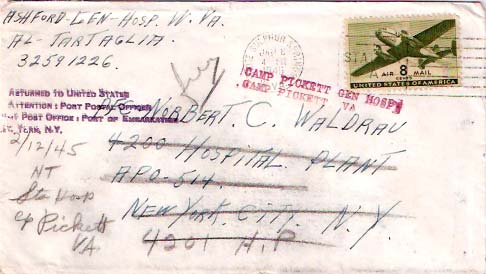 ASHFORD-GEN-HOSP. W. VA.
AL-TARTAGLIA.
32591226.
JAN 8
AIR 8 MAIL
CENTS
UNITED STATES OF AMERICA
CAMP PICKETT GEN HOSP
CAMP PICKETT VA
RETURNED TO UNITED STATES
ATTENTION: PORT POSTAL OFFICER
PORT OF EMBARKATION
N.Y.
NORBERT. C. WALDRAU
4200 HOSPITAL PLANT
APO-514.
NEW YORK CITY N.Y.
4201 H.P
2/12/45
NT
Sta Hosp
Cp Pickett
VA